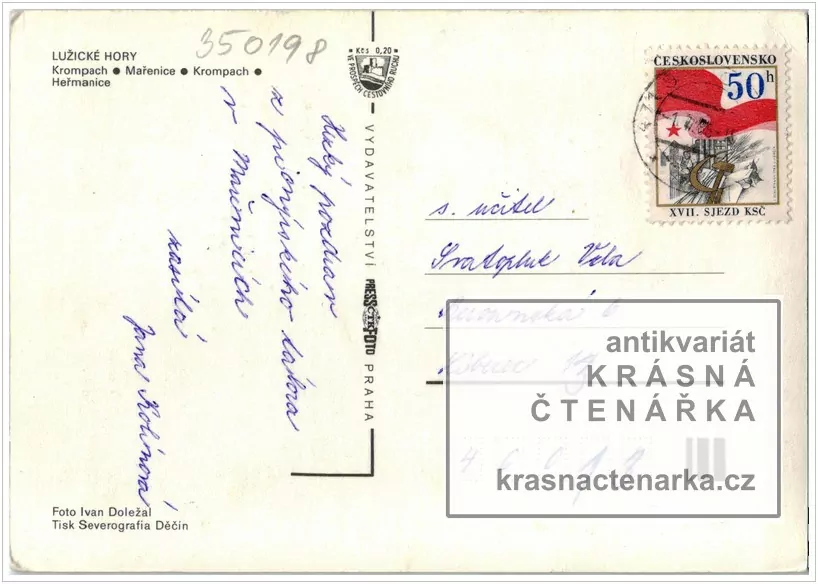 350198
LUŽICKÉ HORY
Krompach ● Mařenice ● Krompach ●
Heřmanice
Kčs 0,20
VE PROSPĚCH CESTOVNÍHO RUCHU
VYDAVATELSTVÍ PRESSFOTO PRAHA
ČTK
ČESKOSLOVENSKO
50 h
XVII. SJEZD KSČ
Hezký pozdrav
z pionýrského tábora
v Mařenicích
zasílá
Jana Kolínová
s. učitel
Svatopluk Vela
6
Liberec
460
antikvariát
KRÁSNÁ
ČTENÁŘKA
krasnactenarka.cz
Foto Ivan Doležal
Tisk Severografia Děčín